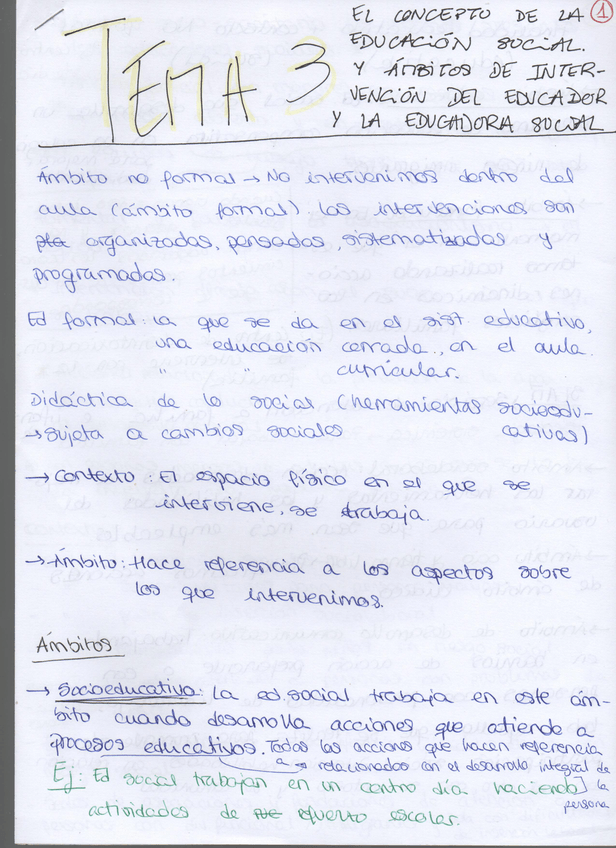 TEMA 3
EL CONCEPTO DE LA
EDUCACIÓN SOCIAL.
Y ÁMBITOS DE INTER-
VENCIÓN DEL EDUCADOR
Y LA EDUCADORA SOCIAL
1
Ámbito no formal → No intervenimos dentro del
aula (ámbito formal) las intervenciones son
organizadas, pensadas, sistematizadas y
programadas.
Ed formal: la que se da en el sist educativo,
una educación cerrada, en el aula.
" " curricular.
Didáctica de lo social (herramientas socioedu-
→ sujeta a cambios sociales cativas)
→ Contexto: El espacio físico en el que se
interviene, se trabaja.
→ Ámbito: Hace referencia a los aspectos sobre
los que intervenimos.
Ámbitos
→ Socioeducativo: La ed. social trabaja en este ám-
bito cuando desarrolla acciones que atiende a
procesos educativos. Todas las acciones que hacen referencia
a → relacionados con el desarrollo integral de
la persona
Ej: Ed social trabajan en un centro día haciendo
actividades de refuerzo escolar.